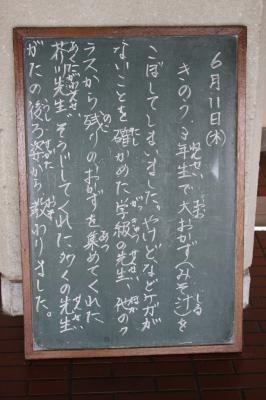 6月11日(木)
きのう、3年生で大おかず(みそ汁)を
こぼしてしまいました。やけどなどケガが
ないことを確かめた学級の先生、他のク
ラスから残りのおかずを集めてくれた
先生、そうじしてくれた多くの先生
がたの後ろ姿から教わりました。